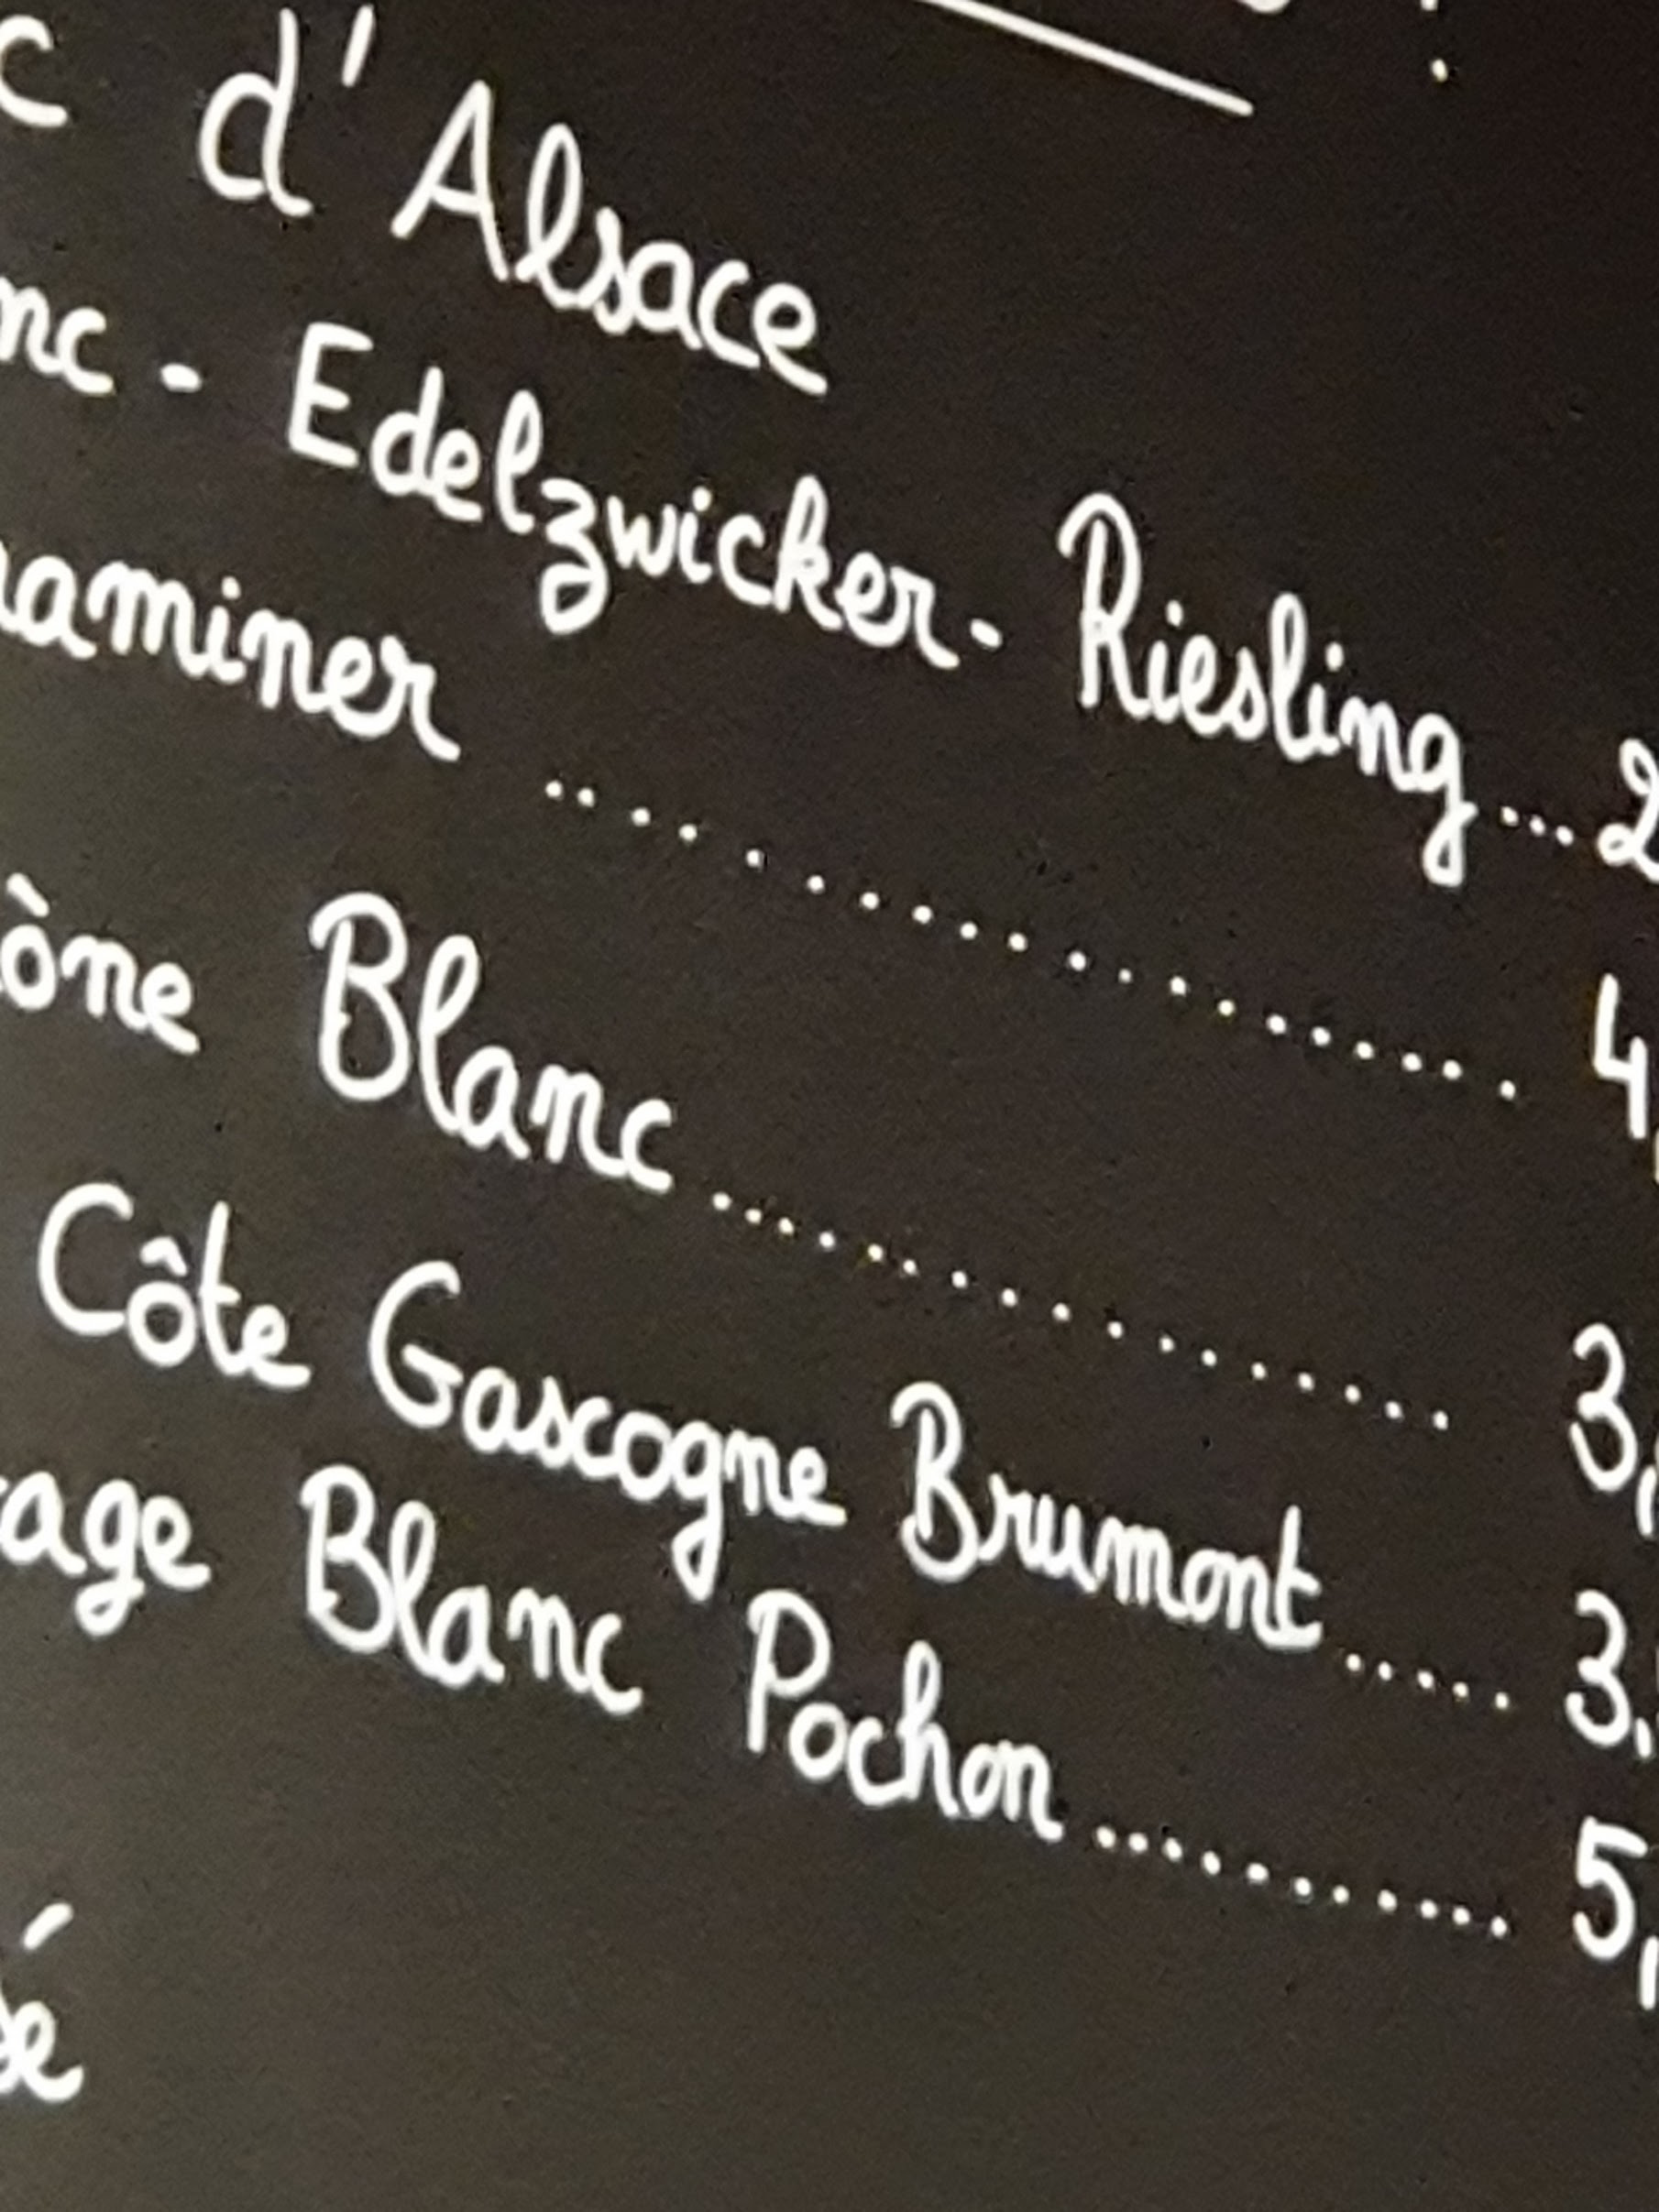 c d'Alsace
nc - Edelzwicker - Riesling ... 2
raminer .................... 4,
ône Blanc ................. 3,
Côte Gascogne Brumont ..... 3,
age Blanc Pochon .......... 5,
sé